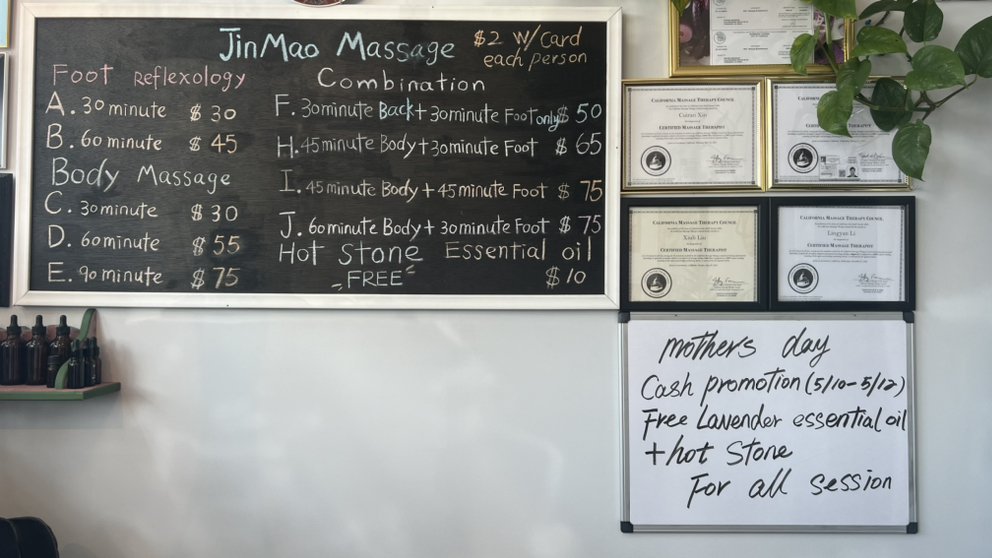 JinMao Massage
$2 w/card
each person
Foot Reflexology
A. 30 minute $ 30
B. 60 minute $ 45
Body Massage
C. 30 minute $ 30
D. 60 minute $ 55
E. 90 minute $ 75
Combination
F. 30 minute Back + 30 minute Foot only $ 50
H. 45 minute Body + 30 minute Foot $ 65
I. 45 minute Body + 45 minute Foot $ 75
J. 60 minute Body + 30 minute Foot $ 75
Hot Stone Essential oil
FREE $10
CALIFORNIA MASSAGE THERAPY COUNCIL
CERTIFIED MASSAGE THERAPIST
CALIFORNIA MASSAGE THERAPY COUNCIL
CERTIFIED MASSAGE THERAPIST
CALIFORNIA MASSAGE THERAPY COUNCIL
CERTIFIED MASSAGE THERAPIST
CALIFORNIA MASSAGE THERAPY COUNCIL
Lingyan Li
CERTIFIED MASSAGE THERAPIST
mothers day
Cash promotion (5/10-5/12)
Free Lavender essential oil
+hot Stone
For all session